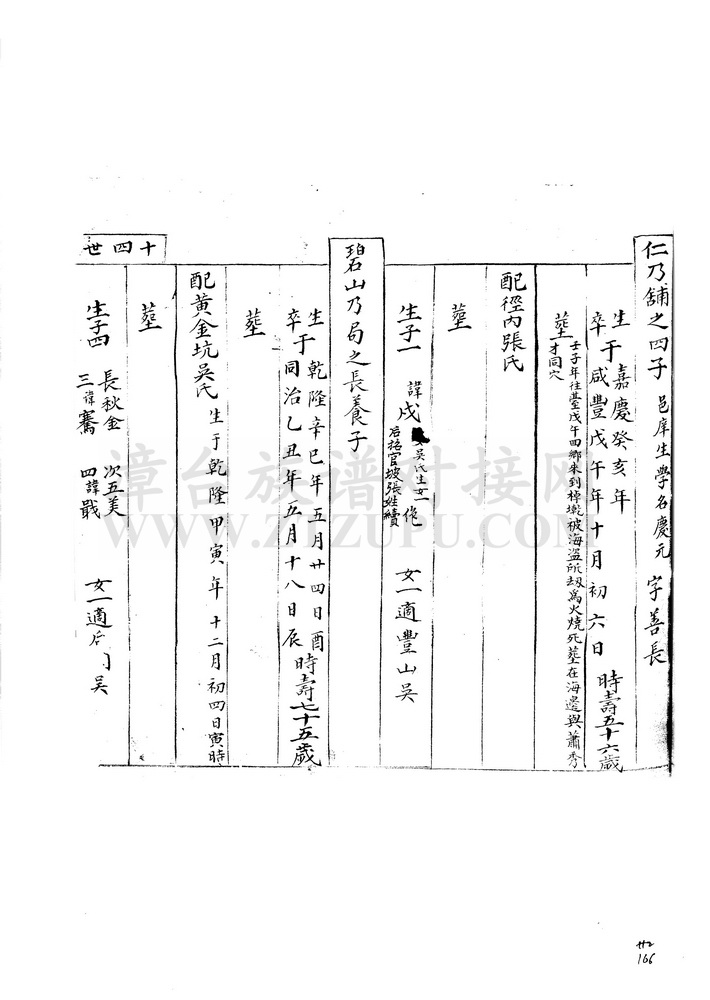 仁乃舖之四子 邑庠生學名慶元 字善長
生于嘉慶癸亥年
卒于咸豐戊午年十月初六日 時壽五十六歲
塟 壬子年往臺戊午回鄉來到棹境被海盜所刼為火燒死塟在海邊與蕭秀
才同穴
配徑內張氏
塟
生子一 諱戌 吳氏生女一
后招官坡張姓續
女一適豐山吳
碧山乃局之長養子
生 乾隆辛巳年五月廿四日酉
卒于同治乙丑年五月十八日辰 時壽七十五歲
塟
配黃金坑吳氏 生于乾隆甲寅年十二月初四日寅時
塟
生子四 長秋金 次五美
三諱騫 四諱戢
女一適后 吳
十四世
漳台族谱对接网
WWW.ZTZUPU.COM
廿2
166